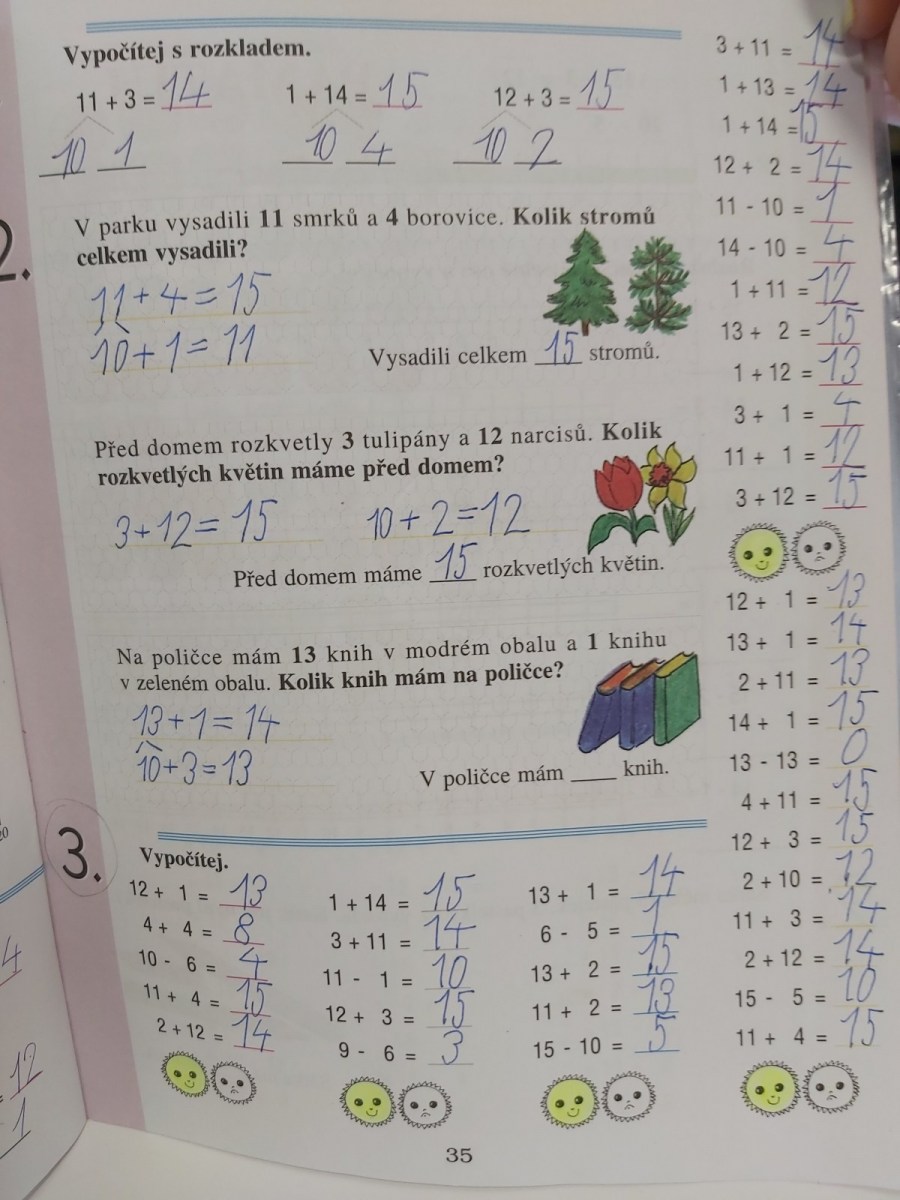 Vypočítej s rozkladem.
11 + 3 = 14
1 + 14 = 15
12 + 3 = 15
10 1
10 4
10 2
2.
V parku vysadili 11 smrků a 4 borovice. Kolik stromů
celkem vysadili?
11 + 4 = 15
10 + 1 = 11
Vysadili celkem 15 stromů.
Před domem rozkvetly 3 tulipány a 12 narcisů. Kolik
rozkvetlých květin máme před domem?
3 + 12 = 15
10 + 2 = 12
Před domem máme 15 rozkvetlých květin.
Na poličce mám 13 knih v modrém obalu a 1 knihu
v zeleném obalu. Kolik knih mám na poličce?
13 + 1 = 14
10 + 3 = 13
V poličce mám ____ knih.
3.
Vypočítej.
12 + 1 = 13
4 + 4 = 8
10 - 6 = 4
11 + 4 = 15
2 + 12 = 14
1 + 14 = 15
3 + 11 = 14
11 - 1 = 10
12 + 3 = 15
9 - 6 = 3
13 + 1 = 14
6 - 5 = 1
13 + 2 = 15
11 + 2 = 13
15 - 10 = 5
3 + 11 = 14
1 + 13 = 14
1 + 14 = 15
12 + 2 = 14
11 - 10 = 1
14 - 10 = 4
1 + 11 = 12
13 + 2 = 15
1 + 12 = 13
3 + 1 = 4
11 + 1 = 12
3 + 12 = 15
12 + 1 = 13
13 + 1 = 14
2 + 11 = 13
14 + 1 = 15
13 - 13 = 0
4 + 11 = 15
12 + 3 = 15
2 + 10 = 12
11 + 3 = 14
2 + 12 = 14
15 - 5 = 10
11 + 4 = 15
35
20
4
12
1